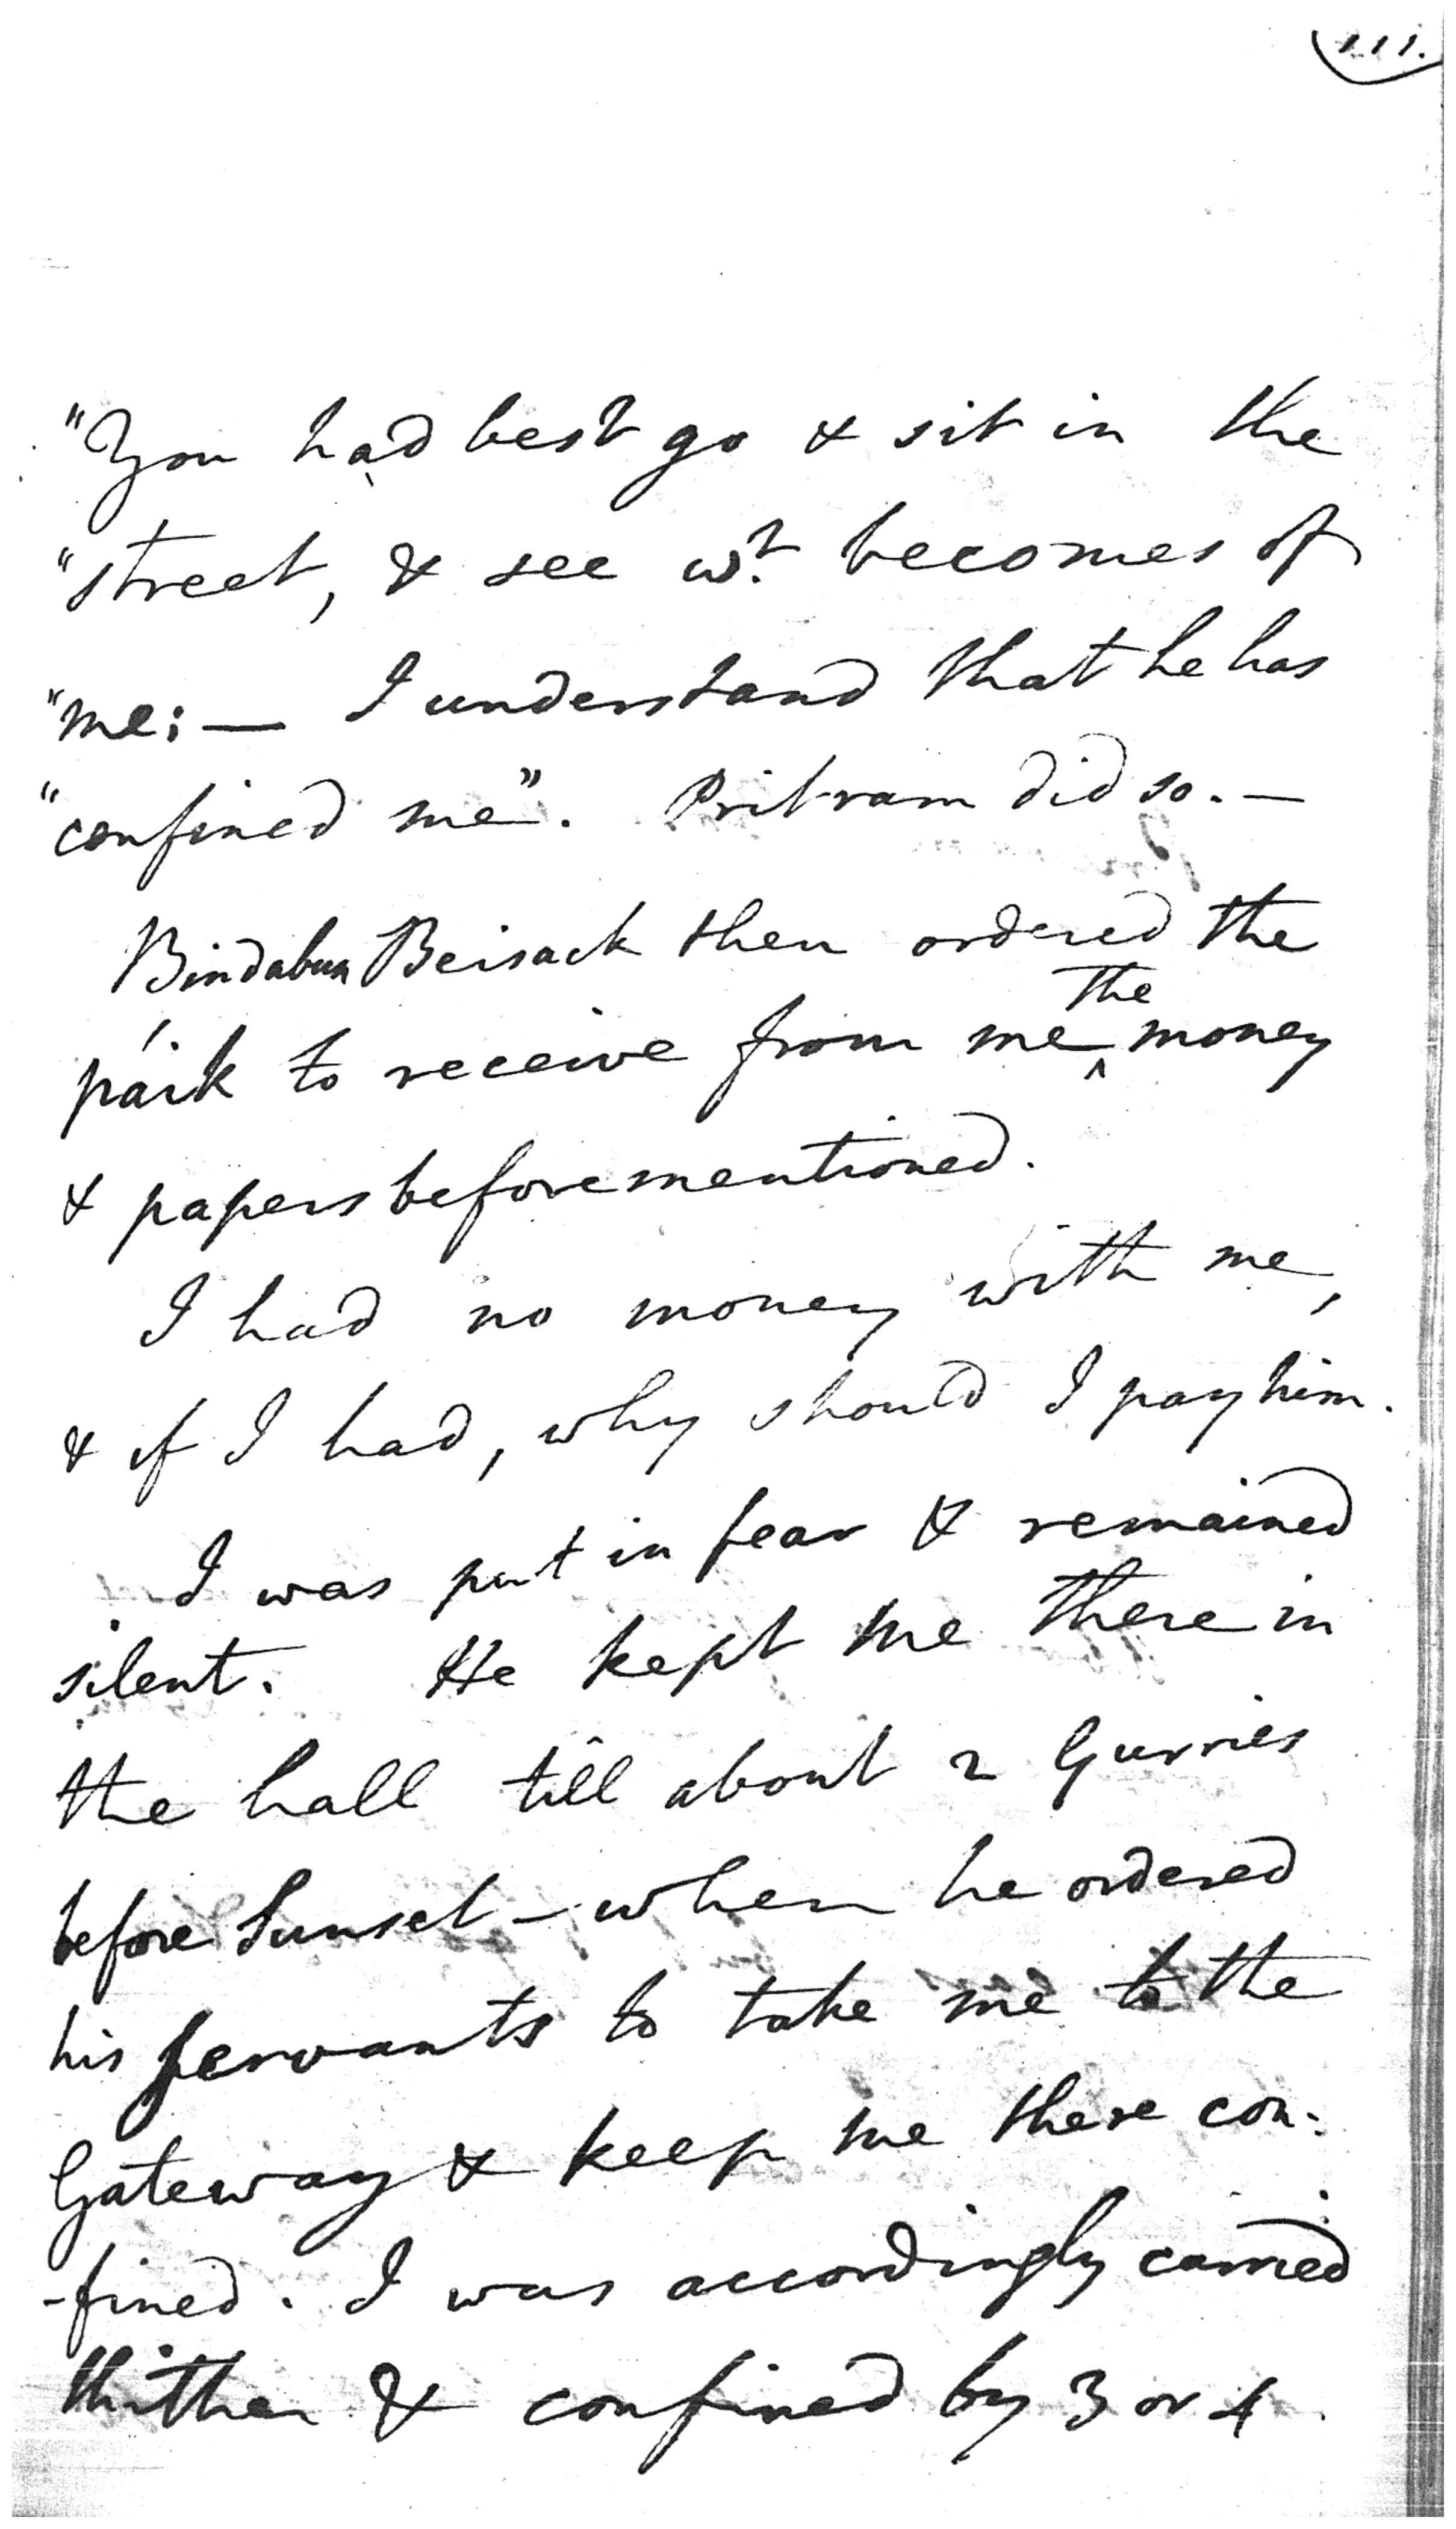 111.
"You had best go & sit in the
"street, & see wt. becomes of
"me; — I understand that he has
"confined me". Pritram did so. —
Bindabun Beisack then ordered the
páik to receive from me ^the money
& papers beforementioned.
I had no money with me,
& if I had, why should I pay him.
I was put in fear & remained
silent. He kept me there in
the hall till about 2 Gurries
before Sunset — when he ordered
his servants to take me to the
Gateway & keep me there con-
-fined. I was accordingly carried
thither & confined by 3 or 4